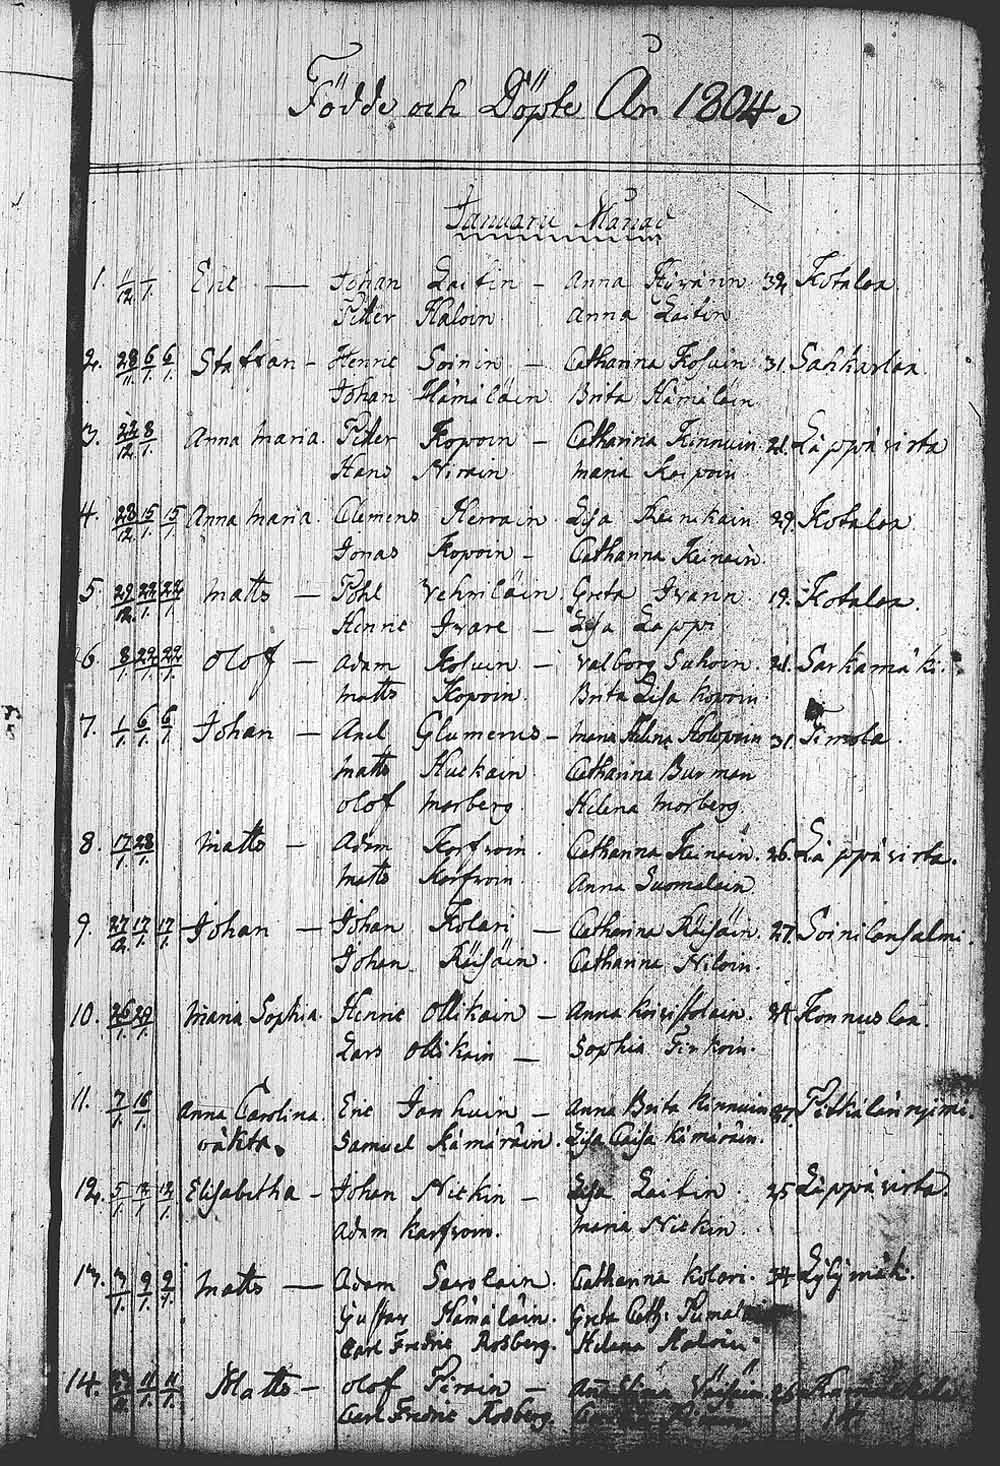 Födde och Döpte År 1804.
Januarii Månad
1. 11/12. 1/1. Eric — Johan Laitin - Anna Hÿvänn 32. Kotalax
Petter Haloin Anna Laitin
2. 28/11. 6/1. 6/1. Staffan - Henric Soinin - Catharina Kosuin 31. Sahkarlax
Johan Hämäläin Brita Hämäläin
3. 22/12. 8/1. Anna Maria. Petter Kopoin - Catharina Kinnuin 21. Läppävirta
Hans Nirain Maria Koipoin
4. 28/12. 15/1. 15/1. Anna Maria. Clemens Hervain Lisa Reinikain 29. Kotalax
Jonas Kopoin - Catharina Keinain.
5. 29/12. 22/1. 22/1. Matts — Pohl Vehviläin. Greta Ivarin 19. Kotalax.
Henric Ivare — Lisa Lappi
6. 8/1. 22/1. 22/1. Olof — Adam Kosuin - Valborg Suhoin. 21. Sarkamäki.
Matts Kopoin. Brita Lisa Kopoin
7. 1/1. 6/1. 6/1. Johan — Axel Glumerus - Maria Helena Holopain 31. Timola.
Matts Huskain Catharina Burman
Olof Morberg Helena Morberg
8. 17/1. 28/1. Matts — Adam Korfvoin. Catharina Keinäin. 26. Läppävirta.
Matts Korfvoin Anna Suomalain
9. 27/12. 17/1. 17/1. Johan — Johan Kolari — Catharina Räisäin. 27. Soinilansalmi.
Johan Räisäin. Catharina Niloin.
10. 26/1. 29/1. Maria Sophia. Henric Ollikain - Anna Koivistolain. 24. Konnuslax.
Lars Ollikain — Sophia Tirkoin.
11. 7/1. 16/1. Anna Carolina. Eric Janhuin - Anna Brita Kinnuin 27. Pitkälänniemi.
oäkta. Samuel Kämäräin. Lisa Caisa Kämäräin.
12. 5/1. 12/1. 12/1. Elisabetha - Johan Nickin - Lisa Laitin. 25 Läppävirta.
Adam Karfvoin. Maria Nickin
13. 3/1. 9/1. 9/1. Matts — Adam Savolain. Catharina Kolari. 34. Lylymäki.
Gustav Hämäläin. Greta Cath:
Carl Fredric Rosberg. Helena
14. 11/1. 11/1. Matts — Olof Pirain - 26.
Carl Fredric Rosberg